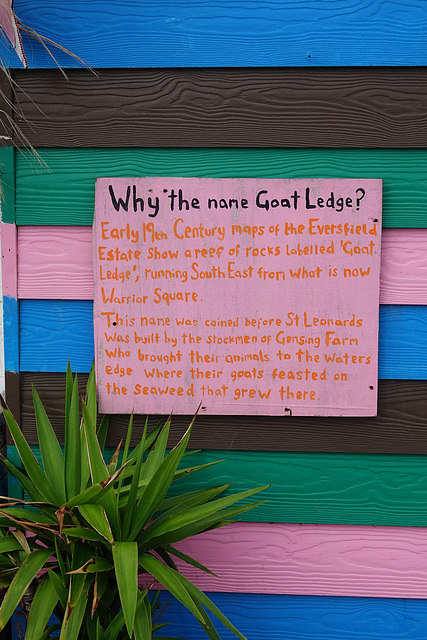 Why the name Goat Ledge?
Early 19th Century maps of the Eversfield
Estate show a reef of rocks labelled 'Goat
Ledge', running South East from what is now
Warrior Square.
This name was coined before St Leonards
was built by the stockmen of Gensing Farm
who brought their animals to the waters
edge where their goats feasted on
the seaweed that grew there.